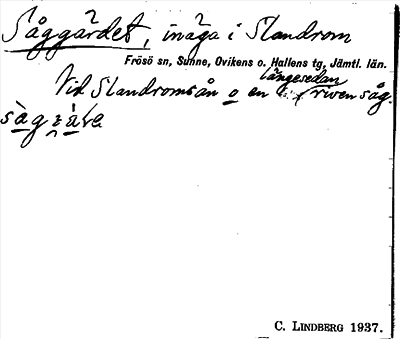 Såggärdet, inäga i Slandrom
Frösö sn, Sunne, Ovikens o. Hallens tg, Jämtl. län.
Vid Slandromsån o en längesedan riven såg.
C. LINDBERG 1937.